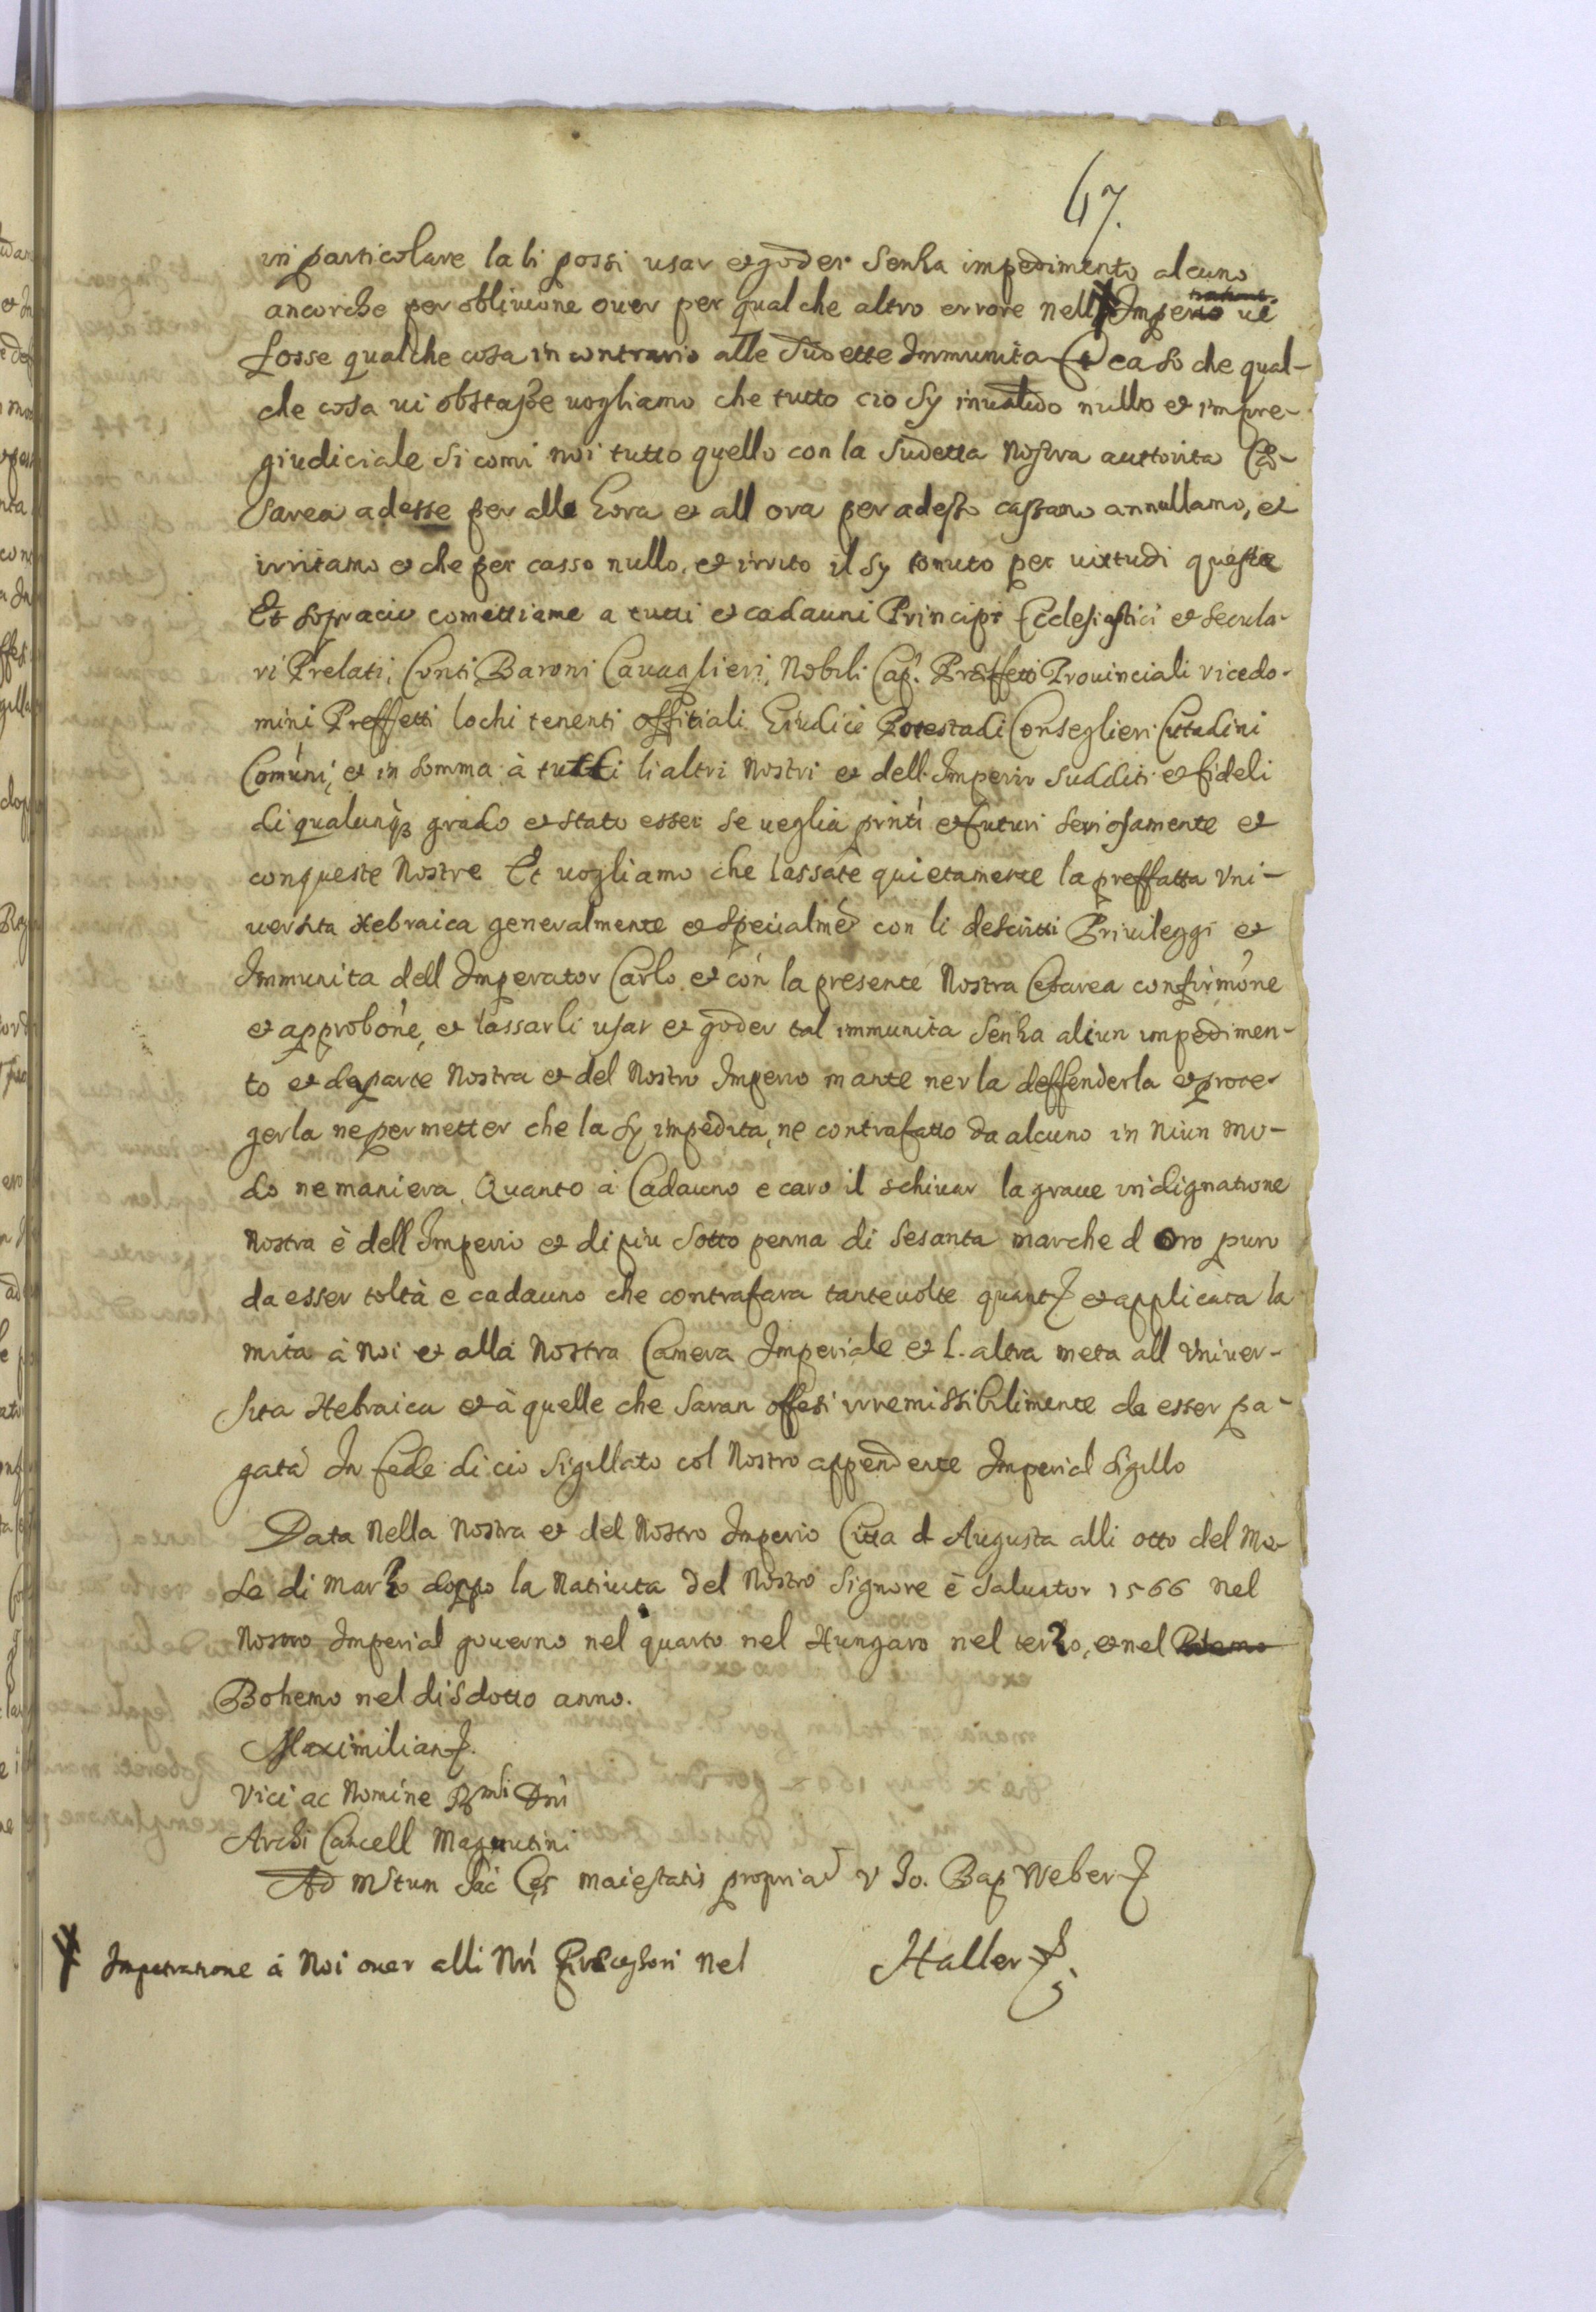 47.
in particolare la li possi usar et goder senza impedimento alcuno
ancorche per oblivione over per qual che altro errore nell Imperio vi
fosse qualche cosa in contrario alle sudette Immunita et caso che qual-
che cosa vi obstasse vogliamo che tutto cio sy invalido nullo et impre-
giudiciale si comi noi tutto quello con la sudetta Nostra auttorita Ce-
sarea adesse per alle hora et all ora per adesso cassamo annullamo, et
irritamo et che per casso nullo, et irrito il sy tenuto per virtudi queste
Et sopracio comettiame a tutti et cadauni Principi Ecclesiastici et Secula-
ri Prelati, Conti, Baroni Cavaglieri, Nobili Cap. Preffetti Provinciali vicedo-
mini Preffetti lochi tenenti offitiali Giudici Potestadi Conseglieri Citadini
Comuni, et in somma à tutti li altri Nostri et dell Imperio sudditi et fideli
di qualunq grado et stato esser se veglia pnti et futuri seriosamente et
con queste Nostre Et vogliamo che lassate quietamente la preffatta Vni-
versita Hebraica generalmente et specialme con li descritti Privileggi et
Immunita dell Imperator Carlo et con la presente Nostra Cesarea confirmone
et approbone, et lassarli usar et goder tal immunita senza alcun impedimen-
to et da parte Nostra et del Nostro Imperio mante nerla deffenderla et prote-
gerla ne permetter che la sy impedita, ne contrafatto da alcuno in Niun mo-
do ne maniera Quanto à Cadauno e caro il schivar la grave indignatione
Nostra è dell Imperio et di piu sotto penna di sesanta marche d Oro puro
da esser toltà e cadauno che contrafara tante volte quant et applicata la
mita à Noi et alla Nostra Camera Imperiale et l. altra meta all Univer-
sita Hebraica et à quelle che saran offesi irremissibilimente da esser pa-
gata In fede di cio sigillato col Nostro appendente Imperial sigillo
Data Nella Nostra et del Nostro Imperio Citta d Augusta alli otto del Me-
se di Marzo doppo la Nativita del Nostro Signore è Salvator 1566 Nel
Nostro Imperial governo nel quarto nel Hungaro nel terzo, et nel
Bohemo nel disdotto anno.
Maximilian
Vici ac Nomine Rmi Dni
Archi Cancell Maguntini
Ad Mdtum Sac Ces Maiestatis propria V Jo. Bap Weber
Impetratione à Noi over alli Nri Precessori Nel
Haller